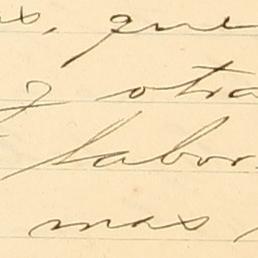 que
y otra
labor
mas